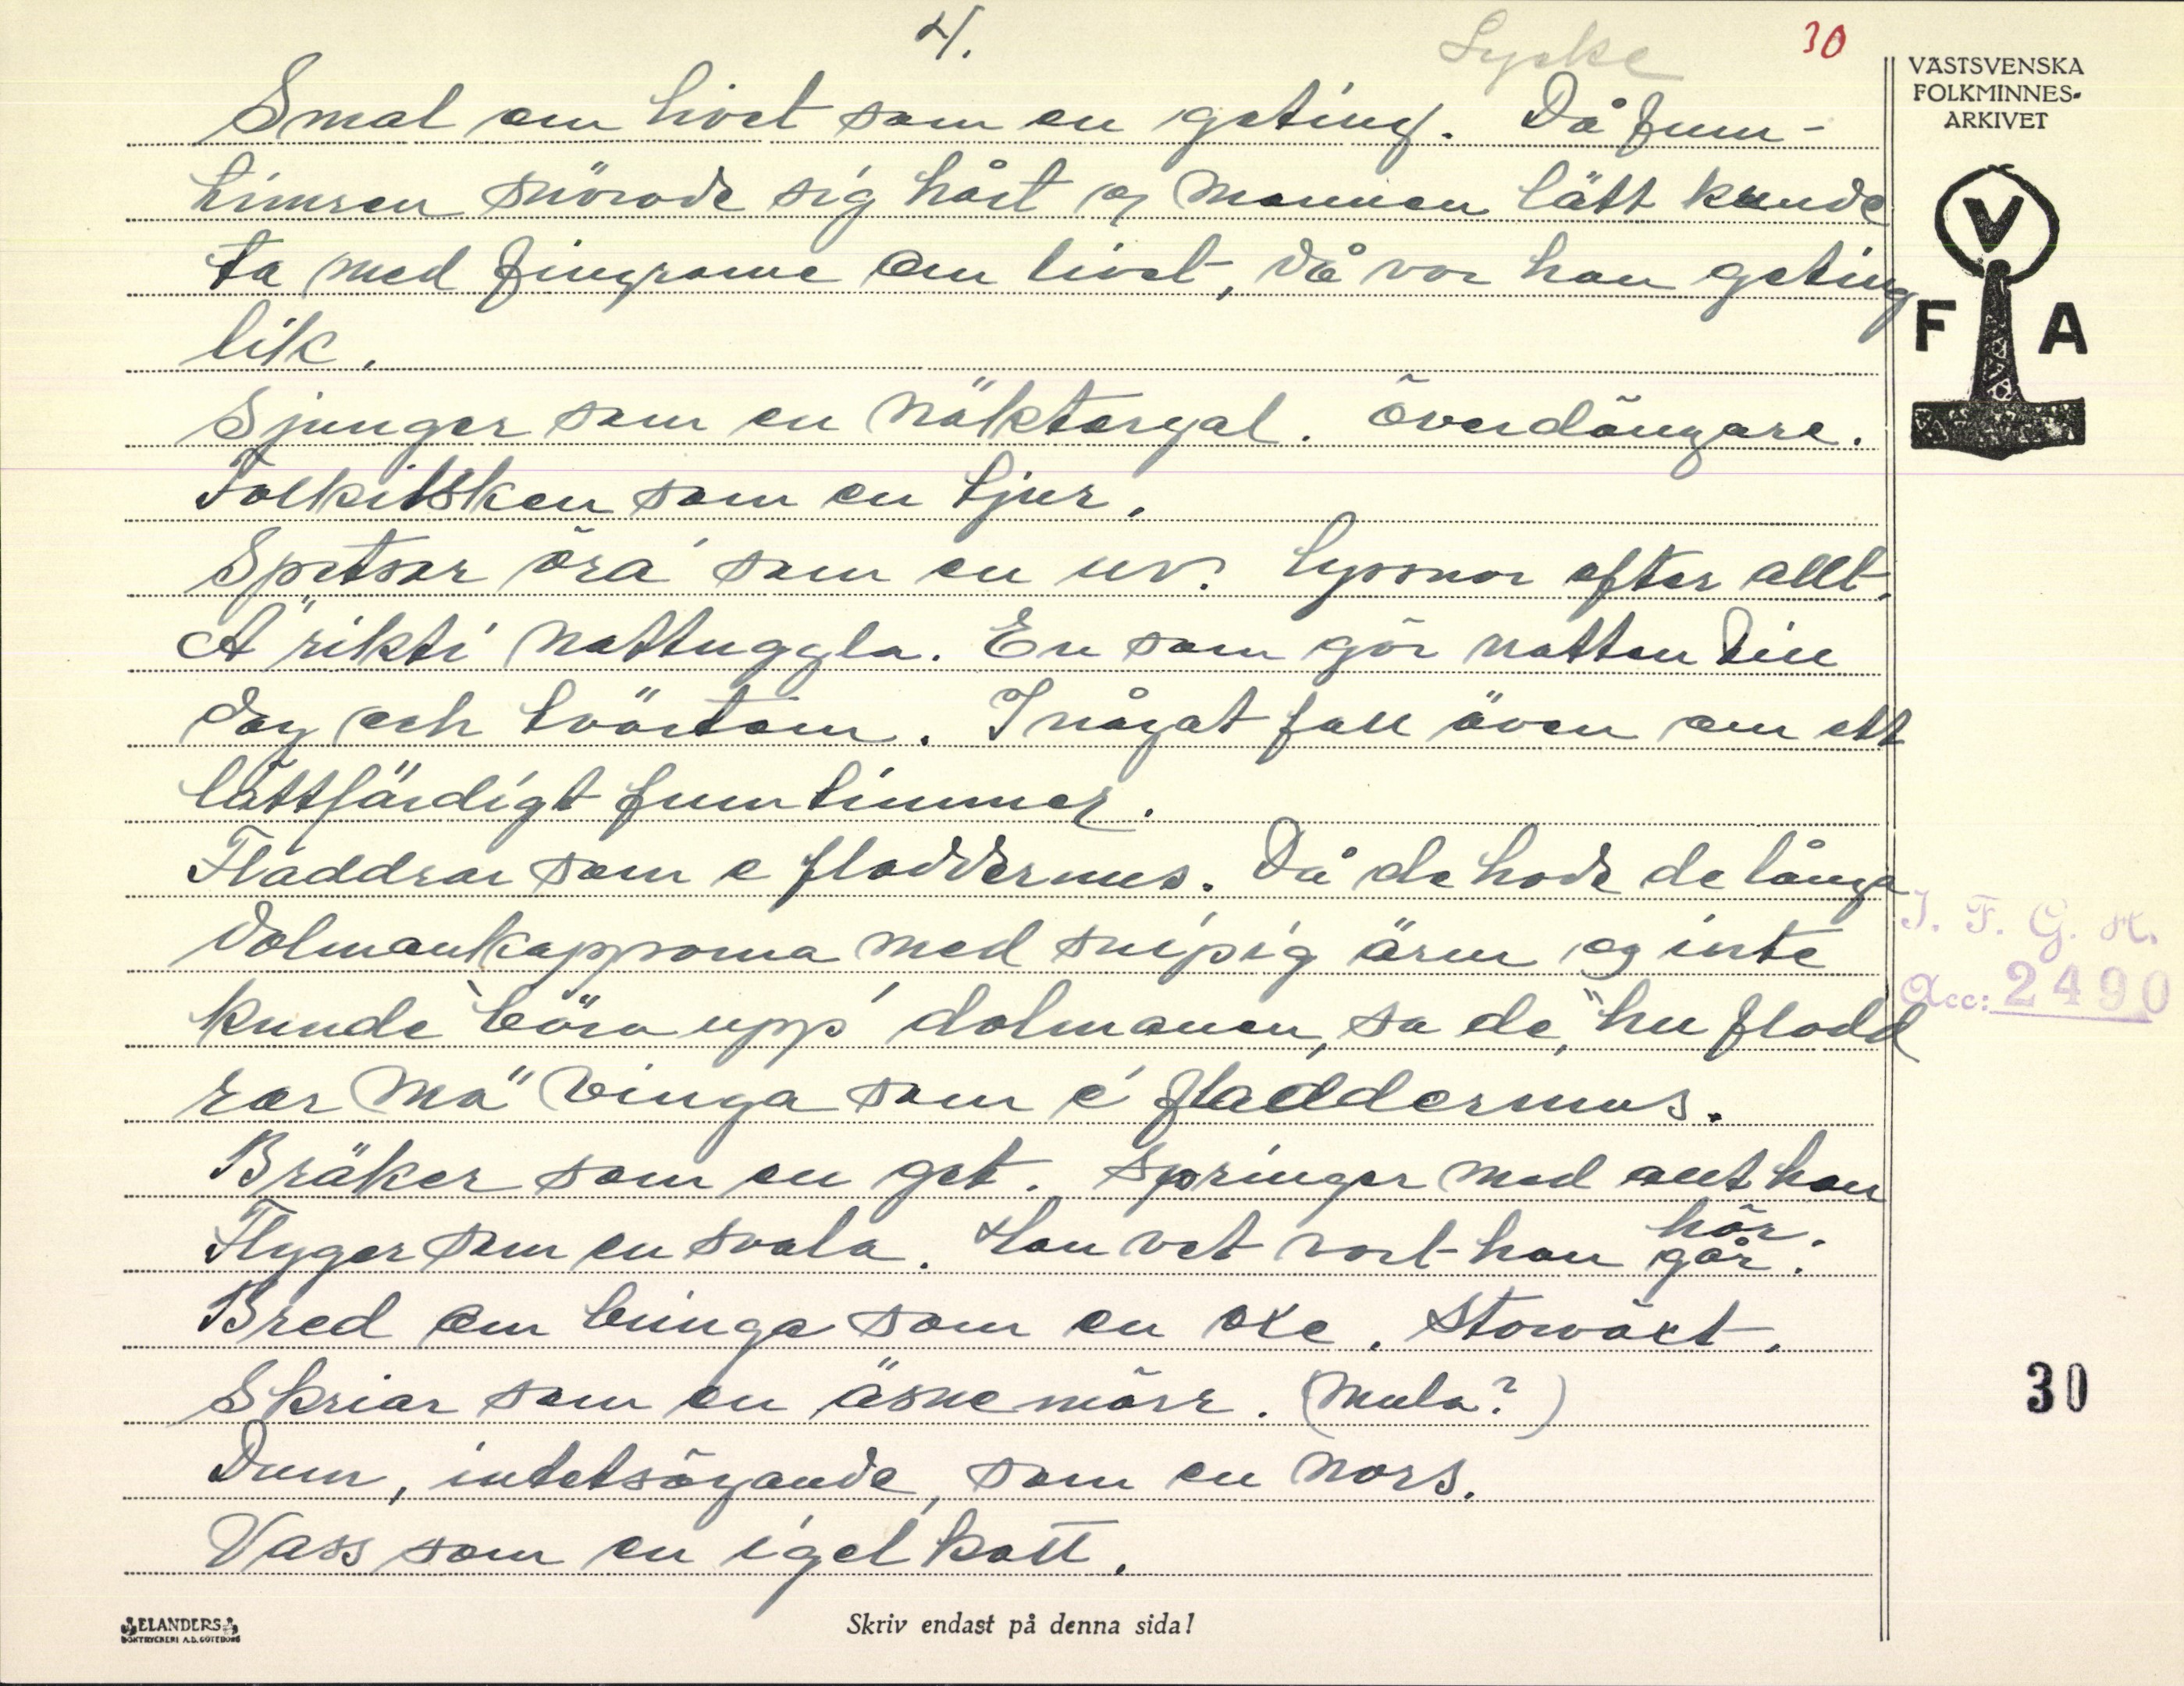 4.
Lycke
30
VÄSTSVENSKA
FOLKMINNES-
ARKIVET
V
F A
Smal om livet som en geting. Då frun-
timren snörade sig hårt og mannen lätt kunde
ta med fingrane om livet, då var hon geting
lik.
Sjunger som en näktergal. överdängare.
Folkilsken som en tjur.
Spetsar öra som en uv. Lyssnar efter allt.
Ä rikti nattuggla. En som gör natten till
dag och tvärtom. I något fall även om ett
lättfärdigt fruntimmer.
Fladdrar som e fladdermus. Då de hade de långa
dolmankapporna med snipig ärm og inte
kunde "bära upp" dolmanen, sa de, "hu fladd
rar mä vinga som e fladdermus.
Bräker som en get. Springer med allt han
hör.
Flyger som en svala. Han vet vart han går.
Bred om bringa som en oxe. Storväxt.
Skriar som en äsnemärr. (Mula?)
Dum, intetsägande, som en nors.
Vass som en igelkott.
I. F. G. H.
Acc: 2490
30
ELANDERS
BOKTRYCKERI A.B. GÖTEBORG
Skriv endast på denna sida!